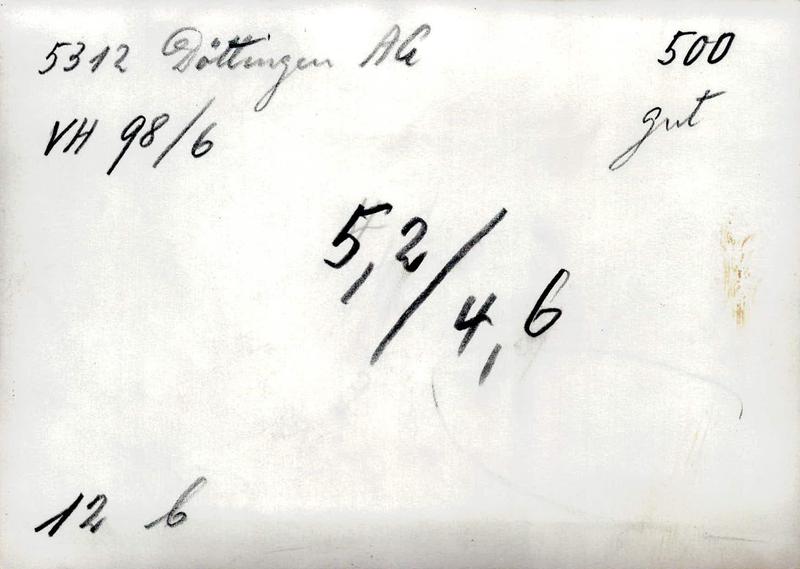 5312 Döttingen AG 500
VH 98/6 gut
5,2/4,6
12 b